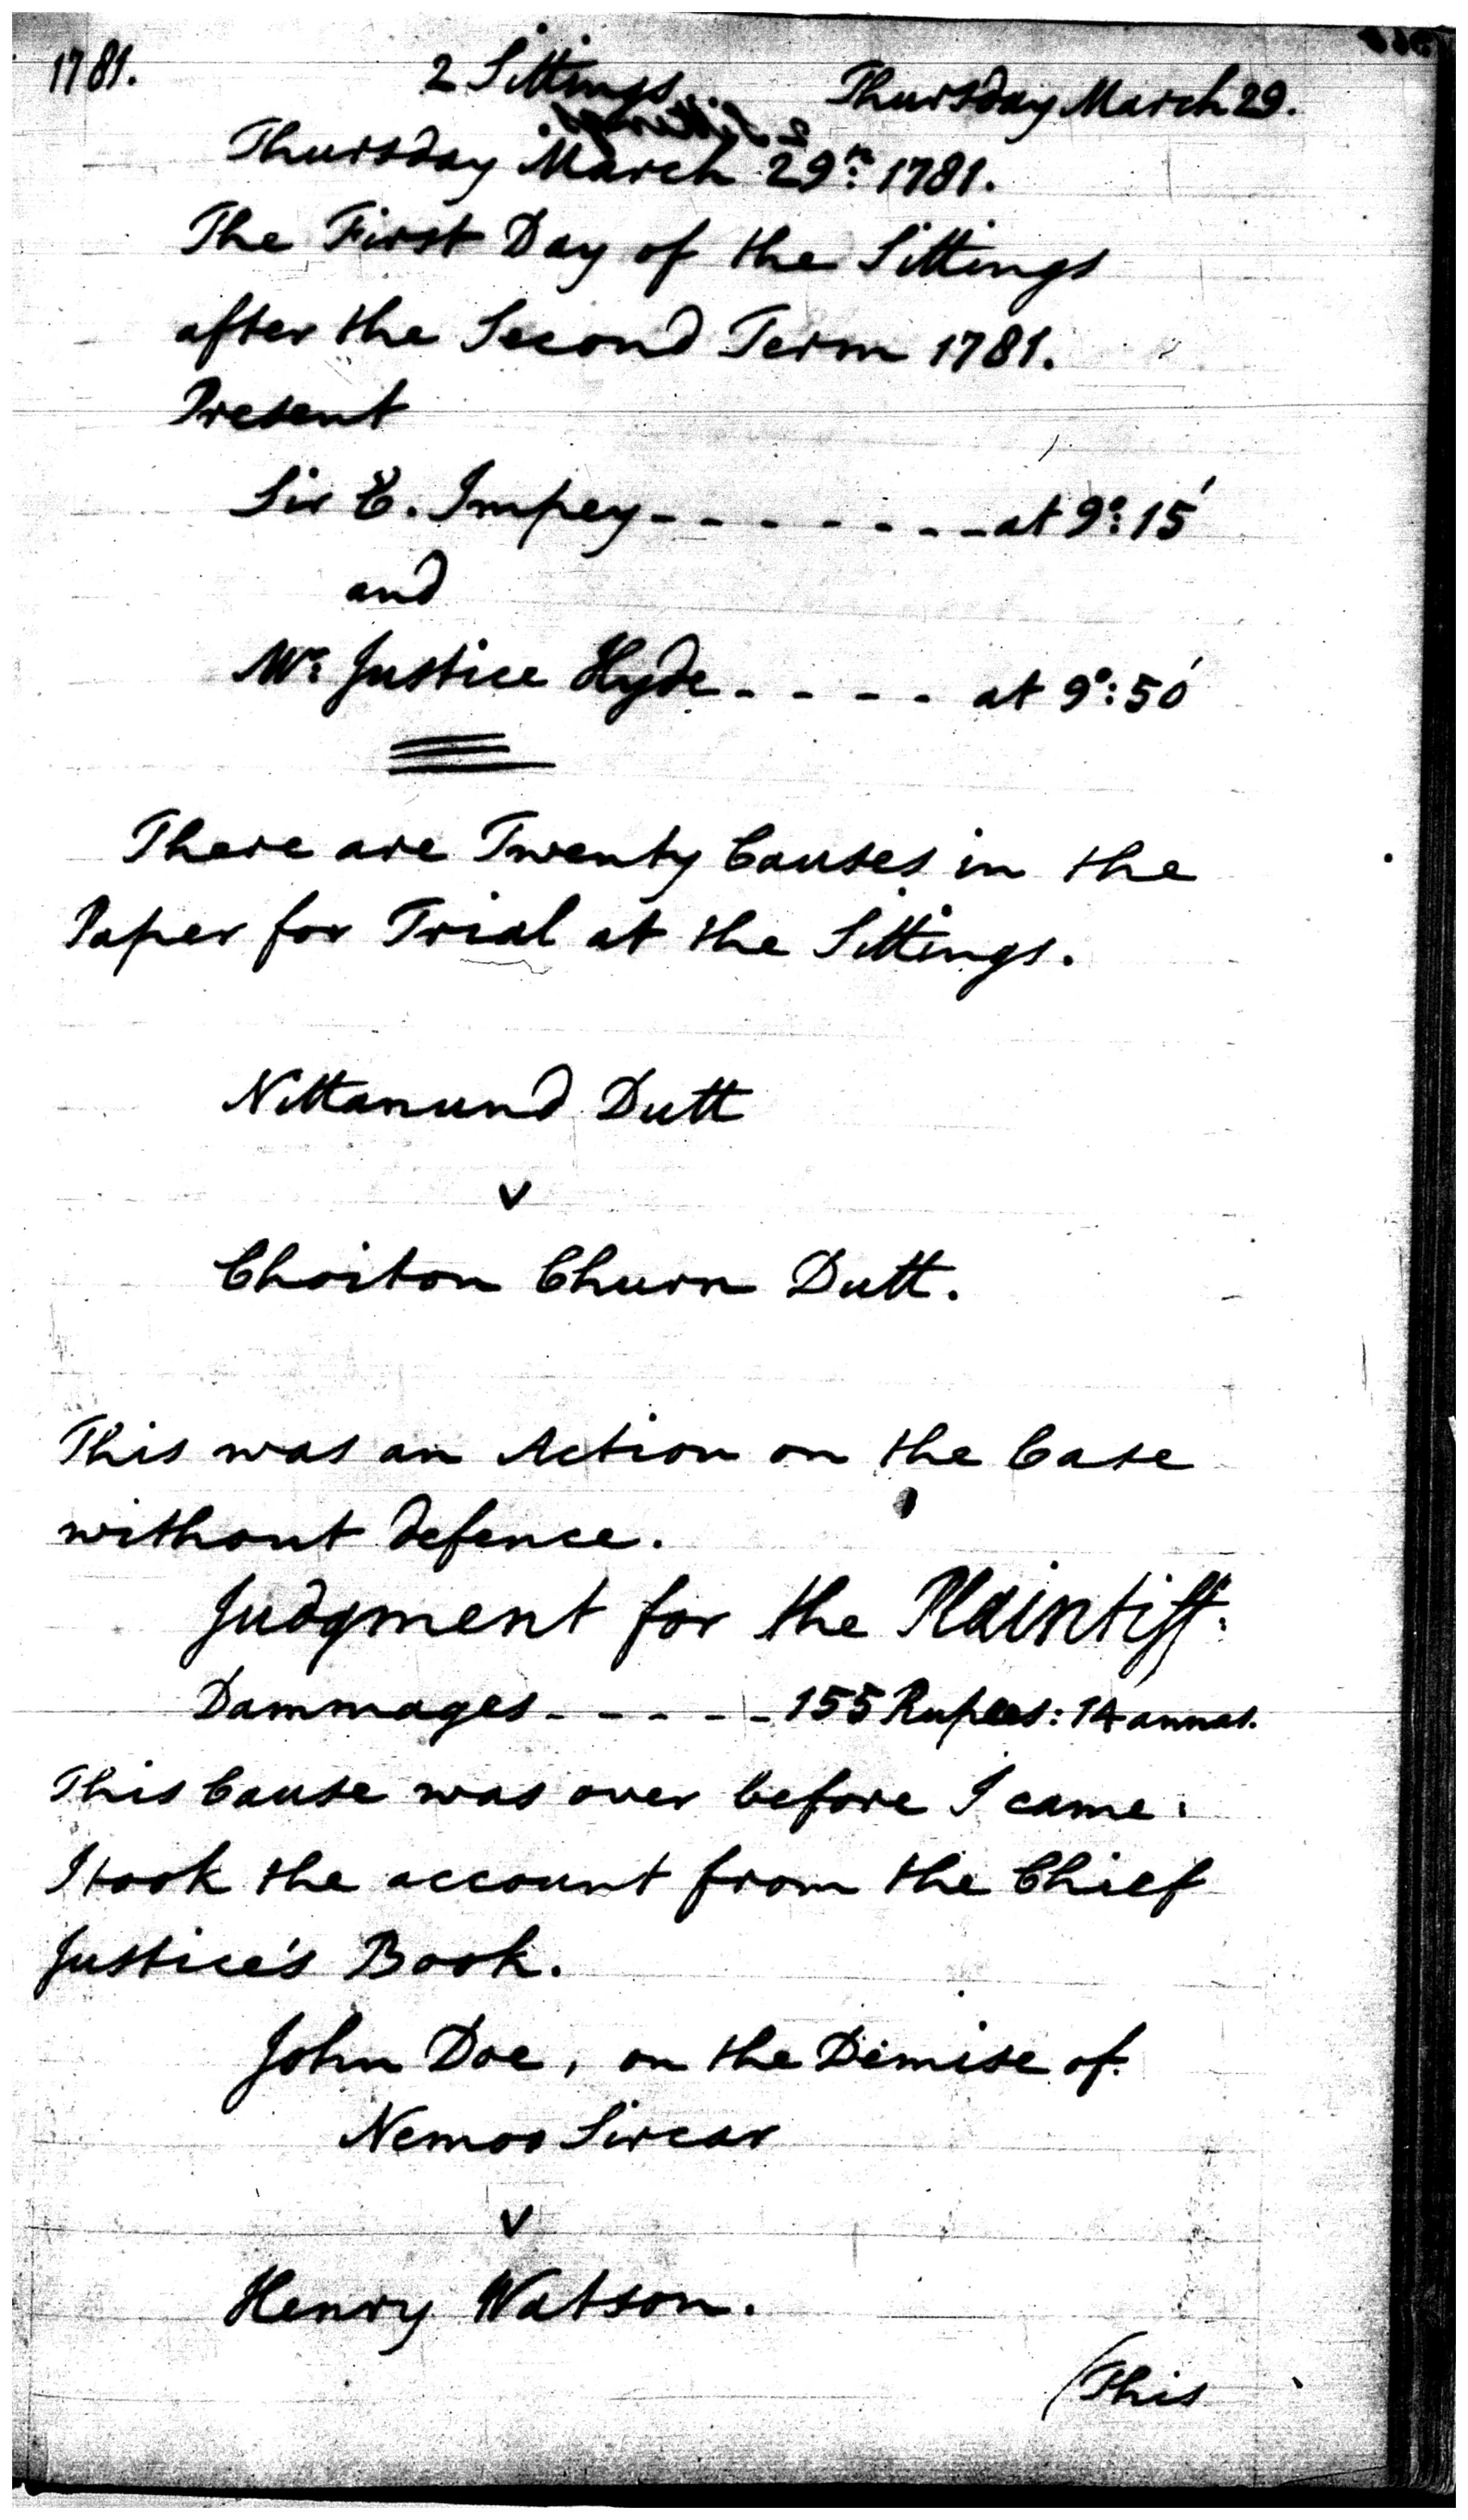 1781. 2 Sittings. Thursday March 29.
Thursday March 29th: 1781.
The First Day of the Sittings
after the Second Term 1781.
Present
Sir E. Impey - - - - - - - - at 9°: 15′
and
Mr: Justice Hyde - - - - at 9°: 50′
There are Twenty Causes in the
Paper for Trial at the Sittings.
Nittanund Dutt
v
Choiton Churn Dutt.
This was an Action on the Case
without defence.
Judgment for the Plaintiff.
Dammages - - - - - 155 Rupees: 14 annas.
This Cause was over before I came.
I took the account from the Chief
Justice's Book.
John Doe, on the Demise of
Nemoo Sircar
v
Henry Watson.
(This